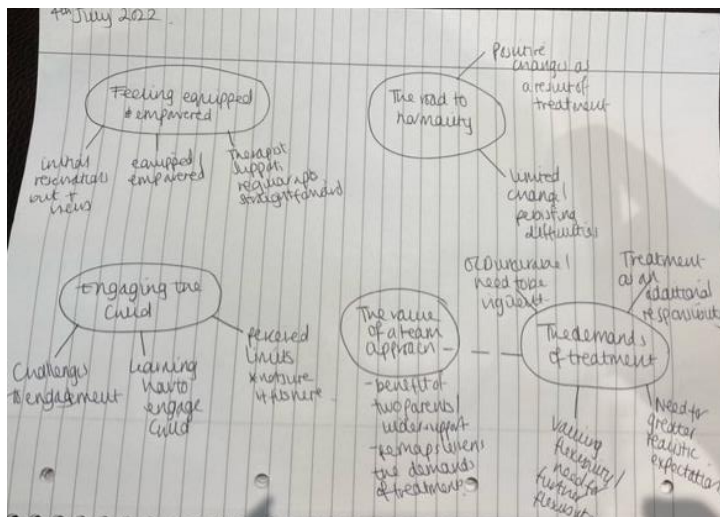 4th July 2022
Feeling equipped
+ empowered
initial
reservations
but + views
equipped/
empowered
Therapist
support,
regular apps
straightforward
The road to
normality
Positive
changes as
a result of
treatment
Limited
change/
persisting
difficulties
Engaging the
Child
Challenges
to engagement
Learning
how to
engage
child
perceived
limits
*not sure
if fits here
The value
of a team
approach
- benefit of
two parents/
wider support
- perhaps lessens
the demands
of treatment?
The demands
of treatment
need to be
vigilant
Treatment
as an
additional
responsibility
Valuing
flexibility/
need for
further
flexibility
Need for
greater
realistic
expectation